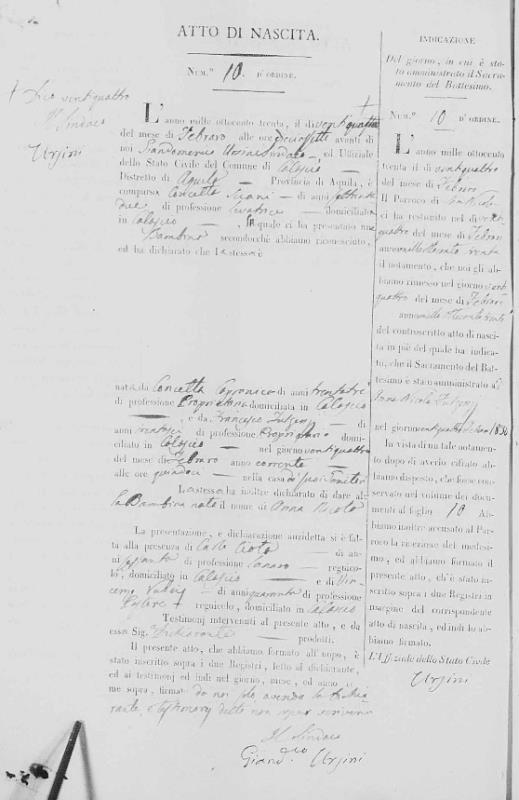 ATTO DI NASCITA.
NUM.° 10. D'ORDINE.
† Dico ventiquattro
Il Sindaco
Ursini
L'anno mille ottocento trenta, il dì ventiquattro
del mese di Febraro alle ore diciassette avanti di
noi Giandomenico Ursini Sindaco ed Uffiziale
dello Stato Civile del Comune di Calascio
Distretto di Aquila — Provincia di Aquila, è
comparsa Concetta — di anni settanta
due di professione Levatrice — domiciliata
in Calascio — la quale ci ha presentato una
Bambina secondochè abbiamo riconosciuto,
ed ha dichiarato che la stessa è
nata da Concetta di anni trentatre
di professione Proprietaria domiciliata in Calascio
— e da Francesco
di anni di professione Proprietario domi-
ciliato in Calascio — nel giorno ventiquattro
del mese di Febraro anno corrente —
alle ore quindici — nella casa di
La stessa ha inoltre dichiarato di dare al
la Bambina nata il nome di Anna Nicola
La presentazione, e dichiarazione anzidetta si è fat-
ta alla presenza di — di an-
ni sessanta di professione — regnico-
lo, domiciliato in Calascio — e di Vin-
cenzo — di anni quaranta di professione
— regnicolo, domiciliato in Calascio
Testimonj intervenuti al presente atto, e da
essa Sig. Dichiarante — prodotti.
Il presente atto, che abbiamo formato all'uopo, è
stato inscritto sopra i due Registri, letto al dichiarante,
ed ai testimonj ed indi nel giorno, mese, ed anno co-
me sopra, firmato da noi solo avendo la dichia
rante, e testimonj detto non saper scrivere
Il Sindaco
Giand.co Ursini
INDICAZIONE
Del giorno, in cui è sta-
to amministrato il Sacra-
mento del Battesimo.
NUM.° 10 D'ORDINE.
L'anno mille ottocento
trenta il dì ventiquattro
del mese di Febraro
Il Parroco di San Nicola
ci ha restituito nel dì venti
quattro del mese di Febraro
anno mille ottocento trenta
il notamento, che noi gli ab-
biamo rimesso nel giorno venti
quattro del mese di Febraro
anno mille ottocento trenta
del controscritto atto di nasci-
ta in piè del quale ha indica-
to, che il Sacramento del Bat-
tesimo è stato amministrato ad
Anna Nicola
nel giorno ventiquattro 1830
In vista di un tale notamento
dopo di averlo cifrato ab-
biamo disposto, che fosse con-
servato nel volume dei docu-
menti al foglio 10 Ab-
biamo inoltre accusato al Par-
roco la ricezione del medesi-
mo, ed abbiamo formato il
presente atto, ch'è stato in-
scritto sopra i due Registri in
margine del corrispondente
atto di nascita, ed indi lo ab-
biamo firmato.
L'Uffiziale dello Stato Civile
Ursini